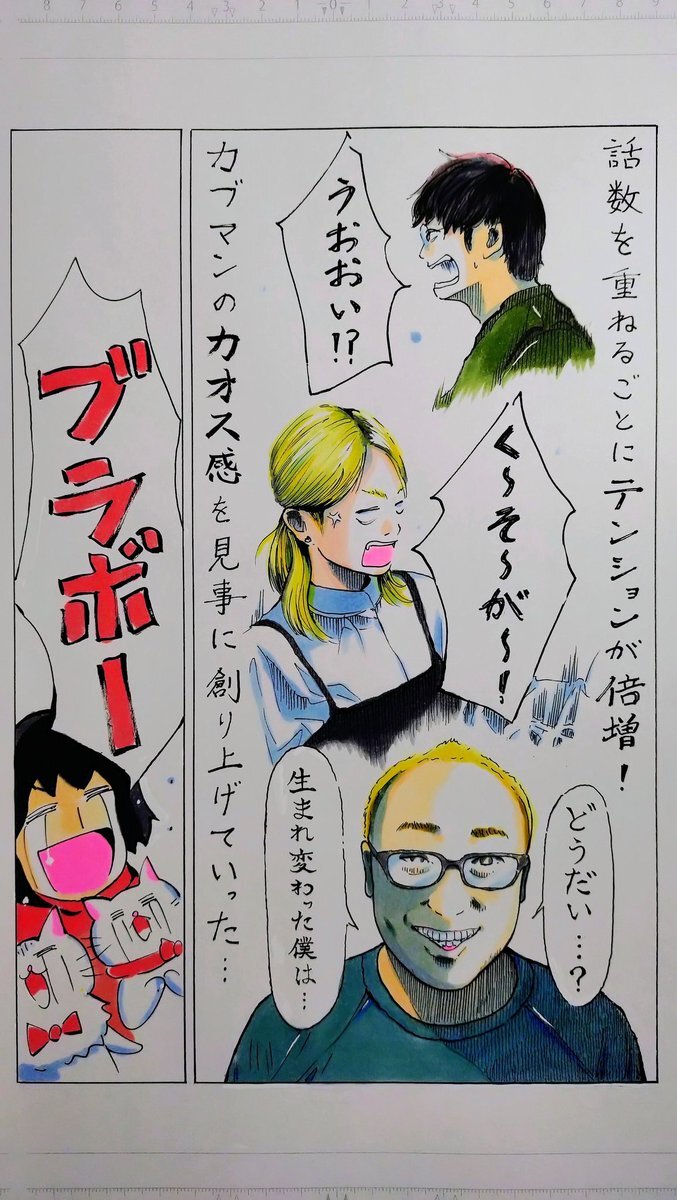 話数を重ねるごとにテンションが倍増！
うおおい!?
く～そ～が～！
どうだい…？
生まれ変わった僕は…
カブマンのカオス感を見事に創り上げていった…
ブラボー